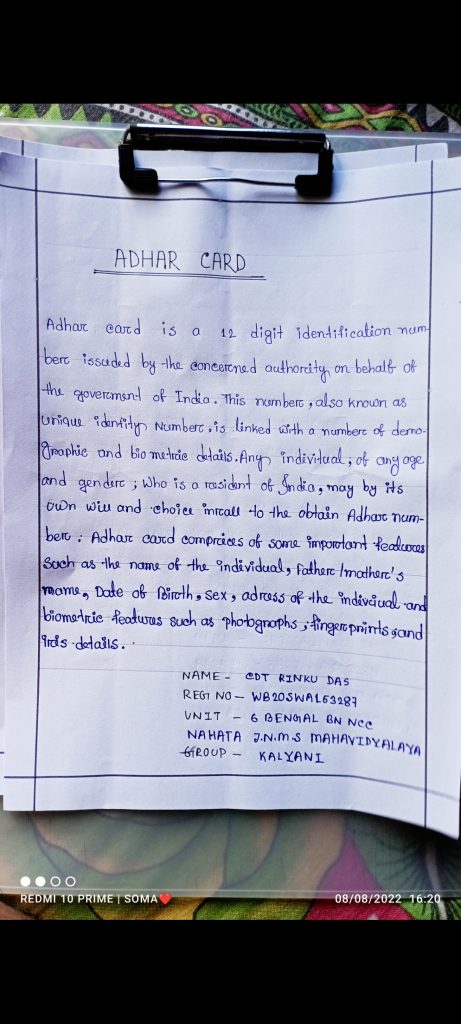 ADHAR CARD
Adhar card is a 12 digit identification num-
ber issuded by the concerned authority on behalf of
the goverment of India. This number, also known as
Unique identity Number, is linked with a number of demo-
graphic and bio metric details. Any individual, of any age
and gender, Who is a resident of India, may by its
own will and choice inrcall to the obtain Adhar num-
ber. Adhar card comprices of some important features
such as the name of the individual, father/mother's
name, Date of Birth, sex, adress of the indivciual and
biometric features such as photographs, finger prints and
iris details.
NAME - CDT RINKU DAS
REGT NO - WB20SWA163287
UNIT - 6 BENGAL BN NCC
NAHATA J.N.M.S MAHAVIDYALAYA
GROUP - KALYANI
REDMI 10 PRIME | SOMA❤
08/08/2022 16:20